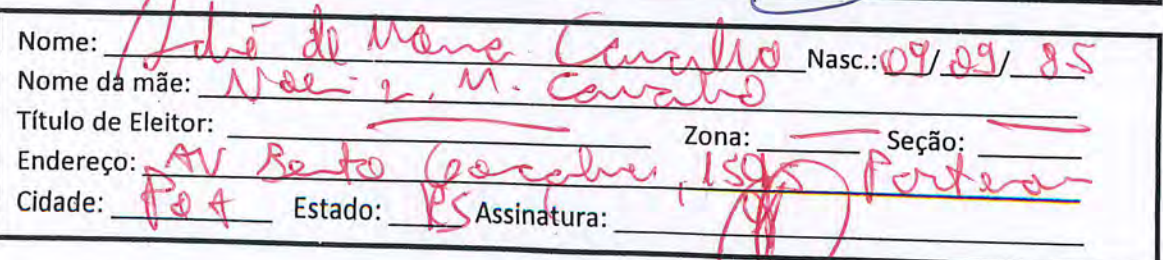 Nome: de Carvalho Nasc.: 09/09/85
Nome da mãe: M. Carvalho
Título de Eleitor: Zona: Seção:
Endereço: AV Bento Gonçalves, 1595 Partenon
Cidade: POA Estado: RS Assinatura: